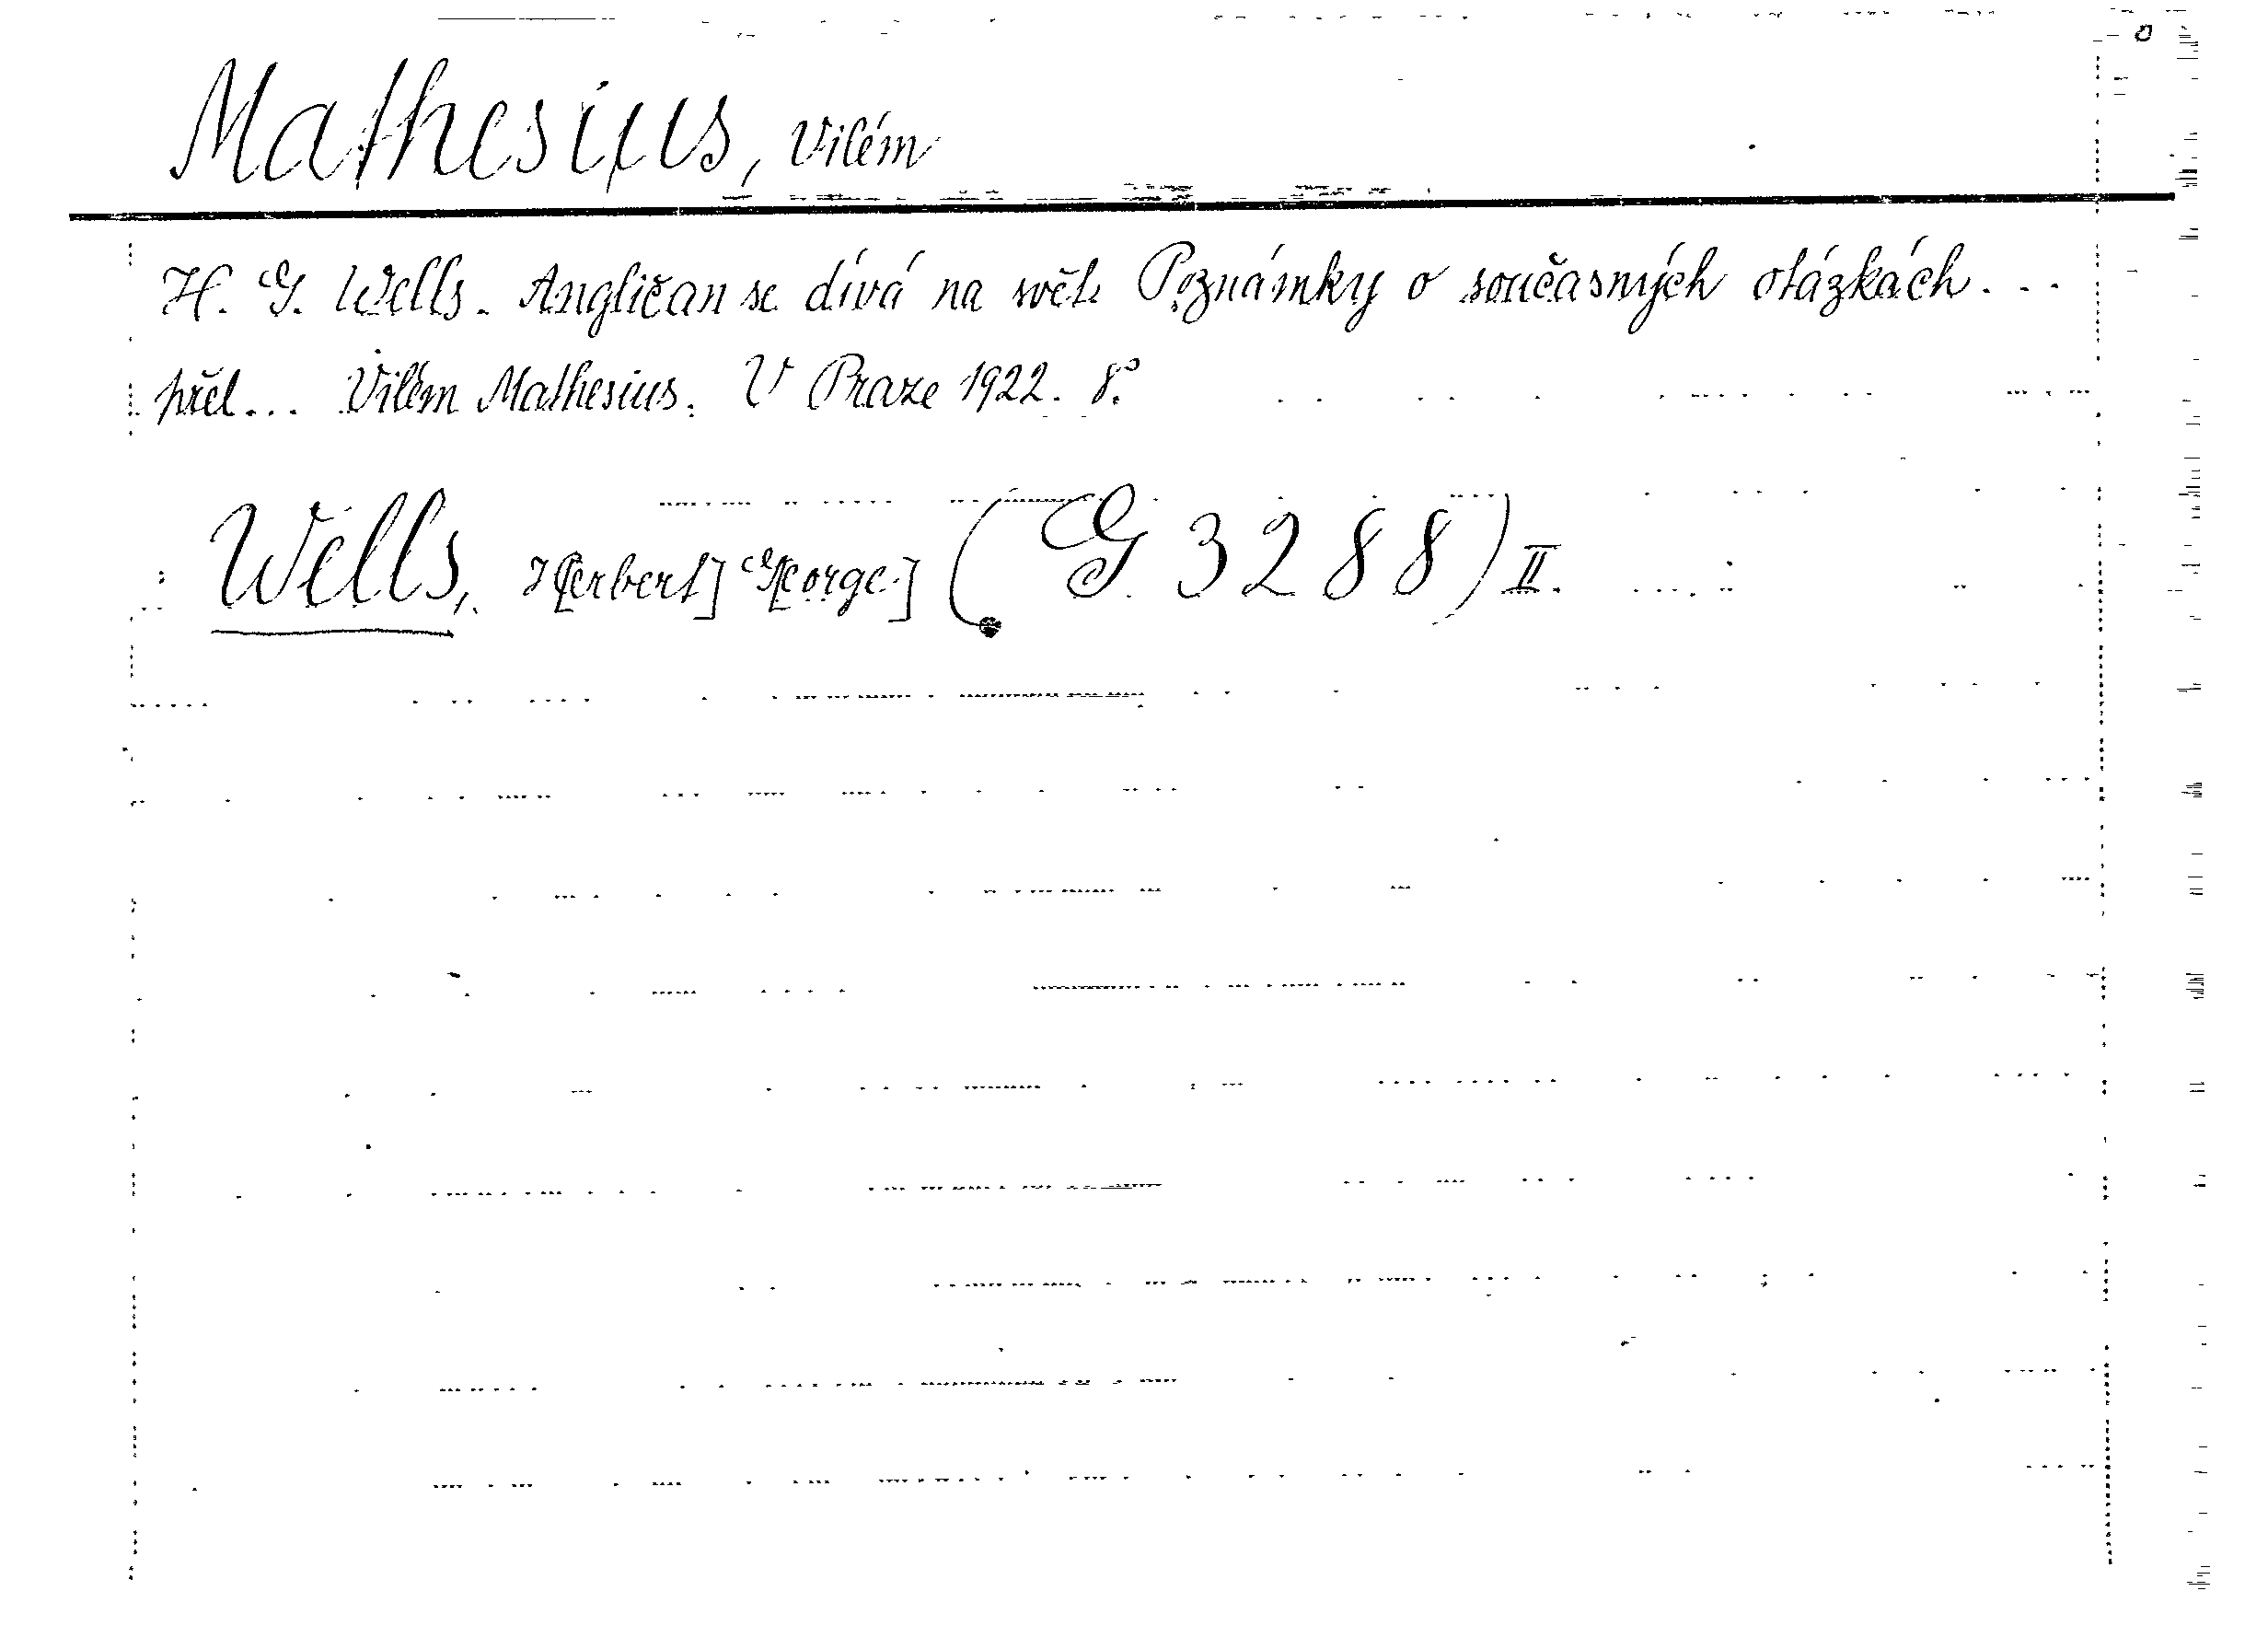 Mathesius, Vilém
H. G. Wells. Angličan se dívá na svět. Poznámky o současných otázkách...
přel... Vilém Mathesius. V Praze 1922. 8°.
Wells, H[erbert] G[eorge] (G 3288) II.